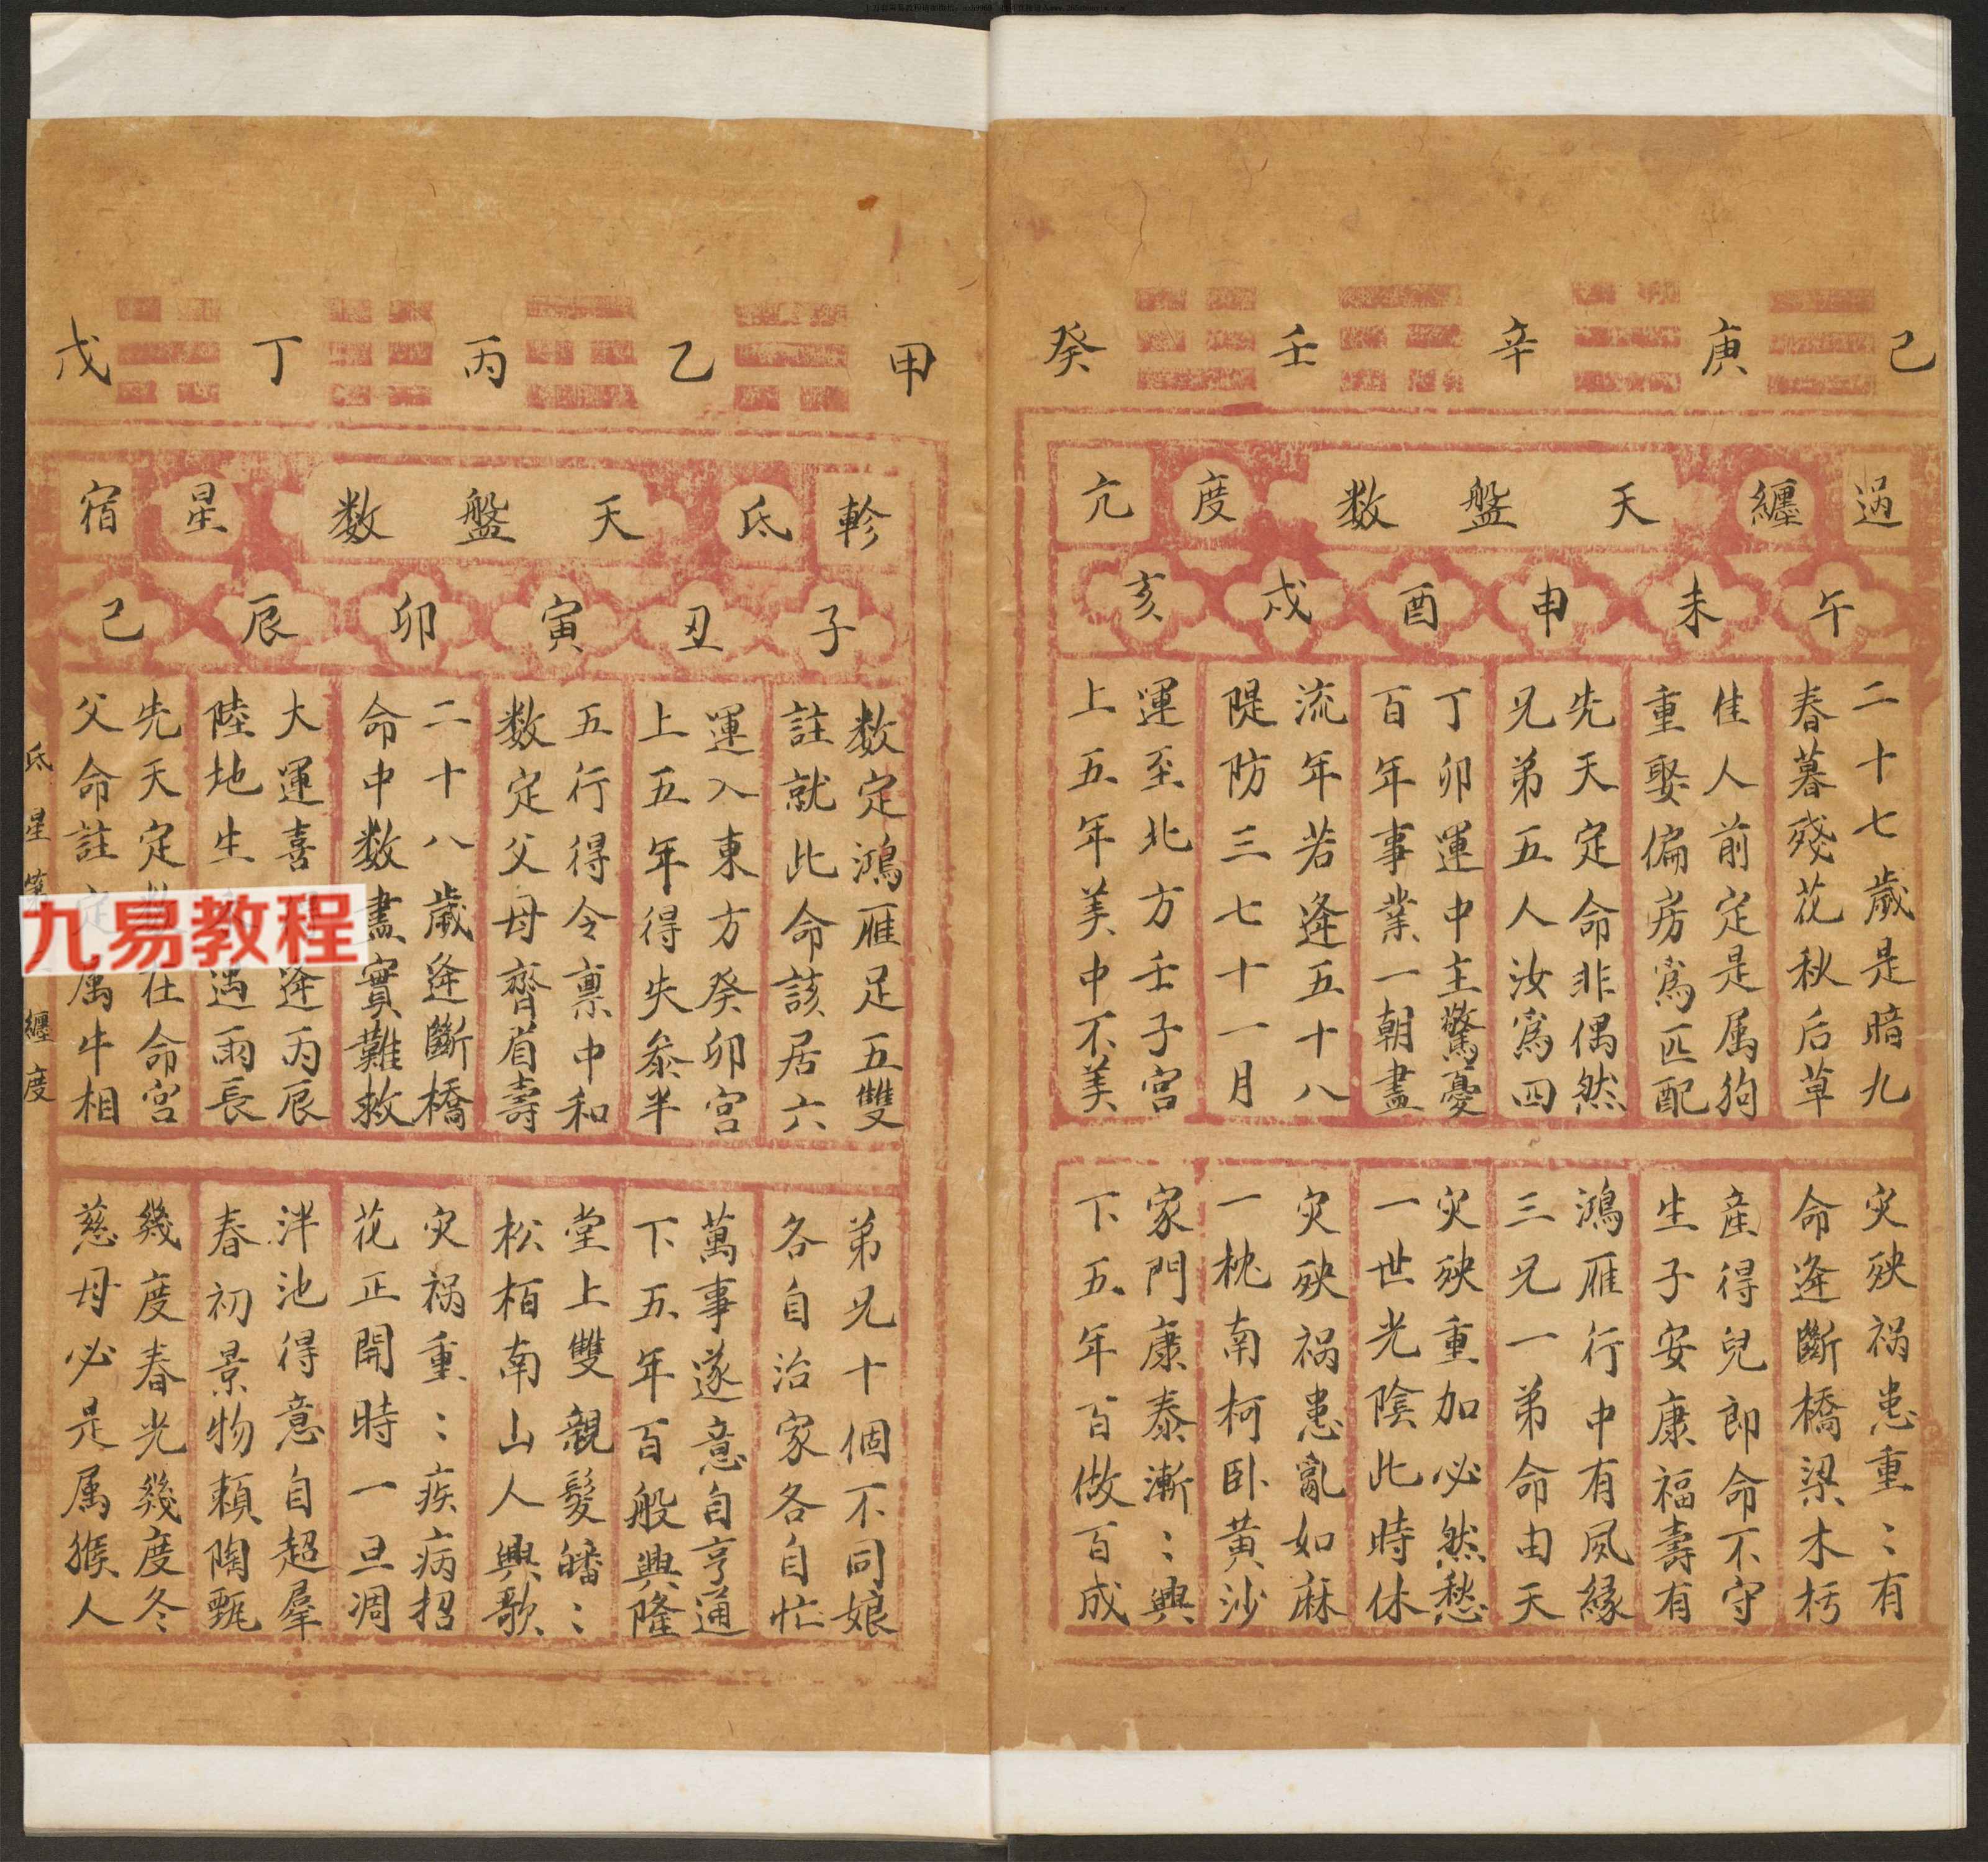 己 庚 辛 壬 癸
過 纏 天盤数 度 亢
午 未 申 酉 戌 亥
二十七歲是暗九
春暮殘花秋后草
佳人前定是属狗
重娶偏房爲匹配
先天定命非偶然
兄弟五人汝爲四
丁卯運中主驚憂
百年事業一朝盡
流年若逢五十八
隄防三七十一月
運至北方壬子宮
上五年美中不美
灾殃禍患重〻有
命逢斷橋梁木朽
產得兒郎命不守
生子安康福壽有
鴻雁行中有夙緣
三兄一弟命由天
灾殃重加必然愁
一世光陰此時休
灾殃禍患亂如麻
一枕南柯卧黄沙
家門康泰漸〻興
下五年百做百成
甲 乙 丙 丁 戊
軫 氐 天盤数 星 宿
子 丑 寅 卯 辰 巳
数定鴻雁足五雙
註就此命該居六
運入東方癸卯宮
上五年得失叅半
五行得令禀中和
数定父母齊眉壽
二十八歲逢斷橋
命中数盡實難救
大運喜逢丙辰
陸地生遇雨長
先天定在命宮
父命註定属牛相
弟兄十個不同娘
各自治家各自忙
萬事遂意自亨通
下五年百般興隆
堂上雙親髮皤〻
松栢南山人興歌
灾禍重〻疾病招
花正開時一旦凋
泮池得意自超羣
春初景物頼陶甄
幾度春光幾度冬
慈母必是属猴人
氐星 纏度
九易教程